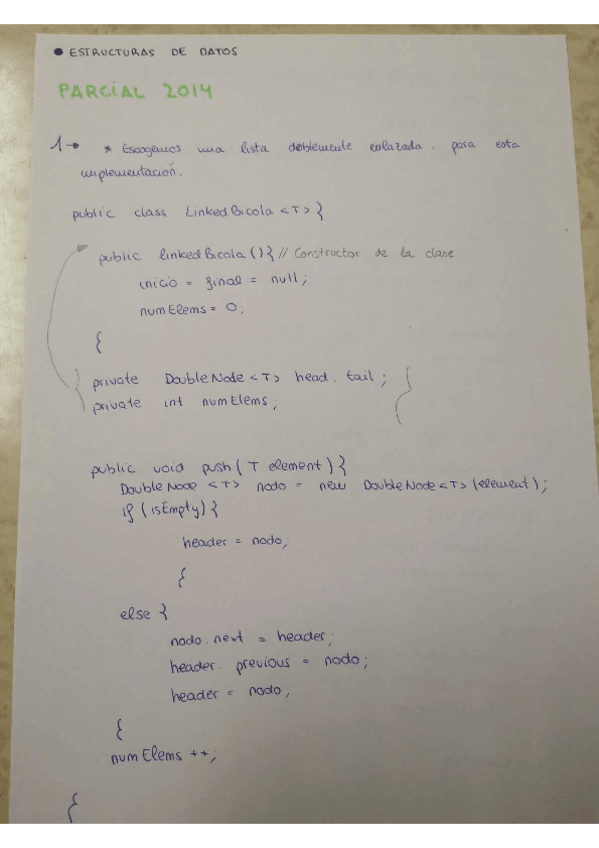 • ESTRUCTURAS DE DATOS
PARCIAL 2014
1→ * Escogemos una lista doblemente enlazada. para esta
implementación.
public class LinkedBicola <T> }
public linkedBicola () } // Constructor de la clase
inicio = final = null;
numElems = 0;
{
private DoubleNode <T> head. tail;
private int numElems;
public void push( T element) }
DoubleNode <T> nodo = new DoubleNode <T> (element);
if (isEmpty) }
header = nodo;
{
else }
nodo.next = header;
header. previous = nodo;
header = nodo;
{
numElems ++;
{